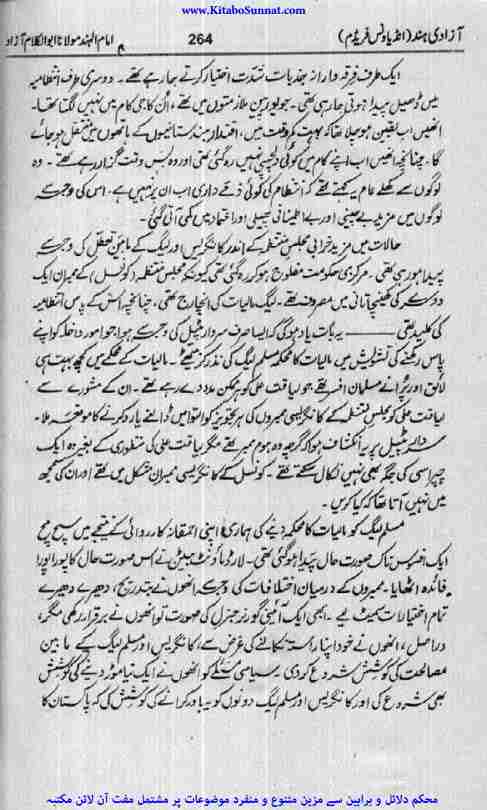 www.KitaboSunnat.com
آزادی ہند (انڈیا ونس فریڈم) 264 امام الہند مولانا ابوالکلام آزاد
ایک طرف فرقہ وارانہ جذبات شدت اختیار کرتے جا رہے تھے۔ دوسری طرف انتظامیہ
میں ڈھیل پیدا ہوتی جا رہی تھی۔ جو یورپین ملازمتوں میں تھے، اُن کا جی کام میں نہیں لگتا تھا۔
انھیں اب یقین ہو چلا تھا کہ بہت کم وقت میں، اقتدار ہندستانیوں کے ہاتھوں میں منتقل ہو جائے
گا۔ چنانچہ انھیں اب اپنے کام میں کوئی دلچسپی نہیں رہ گئی تھی اور وہ بس وقت گزار رہے تھے۔ وہ
لوگوں سے کھلے عام یہ کہتے تھے کہ انتظام کی کوئی ذمے داری اب ان پر نہیں ہے۔ اس کی وجہ سے
لوگوں میں مزید بے چینی اور بے اطمینانی پھیلی اور اعتماد میں کمی آتی گئی۔
حالات میں مزید خرابی مجلس منتظمہ کے اندر کانگریس اور لیگ کے مابین تعطل کی وجہ سے
پیدا ہو رہی تھی۔ مرکزی حکومت مفلوج ہو کر رہ گئی تھی کیونکہ مجلس منتظمہ (کونسل) کے ممبران ایک
دوسرے کی کھینچا تانی میں مصروف تھے۔ لیگ مالیات کی انچارج تھی، چنانچہ اُس کے پاس انتظامیہ
کی کلید تھی ——— یہ بات یاد ہوگی کہ ایسا صرف سردار پٹیل کی وجہ سے ہوا جو امور داخلہ کو اپنے
پاس رکھنے کی تشویش میں مالیات کا محکمہ مسلم لیگ کی نذر کر بیٹھے۔ مالیات کے محکمے میں کچھ بہت ہی
لائق اور پُرانے مسلمان افسر تھے جو لیاقت علی کو ہر ممکن مدد دے رہے تھے۔ ان کے مشورے سے
لیاقت علی کو مجلس منتظمہ کے کانگریسی ممبروں کی ہر تجویز کو التوا میں ڈالنے یا رد کرنے کا موقعہ ملا۔
سردار پٹیل پر یہ انکشاف ہوا کہ گرچہ وہ ہوم ممبر تھے مگر لیاقت علی کی منظوری کے بغیر وہ ایک
چپراسی کی جگہ بھی نہیں نکال سکتے تھے۔ کونسل کے کانگریسی ممبران مشکل میں تھے اور ان کی سمجھ
میں نہیں آتا تھا کہ کیا کریں۔
مسلم لیگ کو مالیات کا محکمہ دینے کی ہماری اپنی احمقانہ کارروائی کے نتیجے میں سچ مچ
ایک افسوس ناک صورت حال پیدا ہو گئی تھی۔ لارڈ ماؤنٹ بیٹن نے اس صورت حال کا پورا پورا
فائدہ اٹھایا۔ ممبروں کے درمیان اختلافات کی وجہ سے انھوں نے بتدریج، دھیرے دھیرے
تمام اختیارات سمیٹ لیے۔ ابھی ایک آئینی گورنر جنرل کی صورت تو انھوں نے برقرار رکھی مگر،
دراصل، انھوں نے خود اپنا راستہ نکالنے کی غرض سے، کانگریس اور مسلم لیگ کے مابین
مصالحت کی کوشش شروع کر دی۔ سیاسی مسئلے کو انھوں نے ایک نیا موڑ دینے کی کوشش
بھی شروع کی اور کانگریس اور مسلم لیگ دونوں کو یہ باور کرانے کی کوشش کی کہ پاکستان کا
محکم دلائل و براہین سے مزین متنوع و منفرد موضوعات پر مشتمل مفت آن لائن مکتبہ